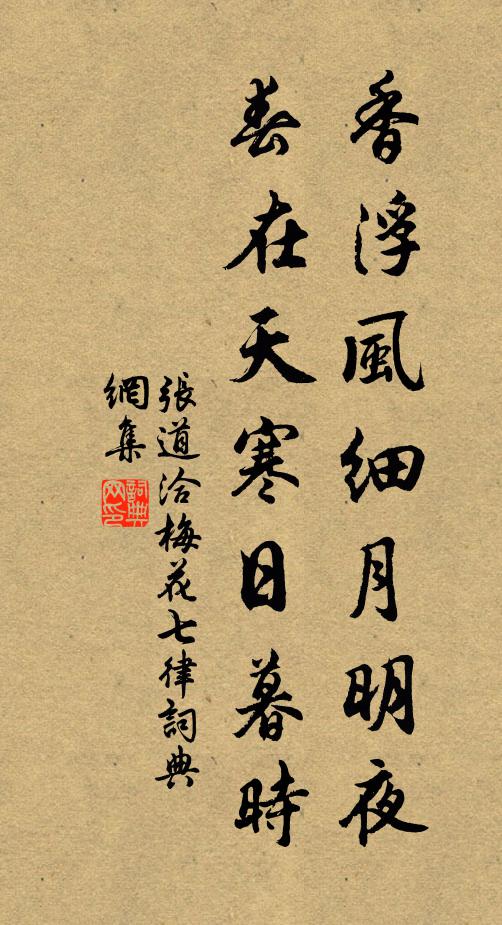 香浮風細月明夜
春在天寒日暮時
張道洽梅花七律詞典
網集
詞典
网印